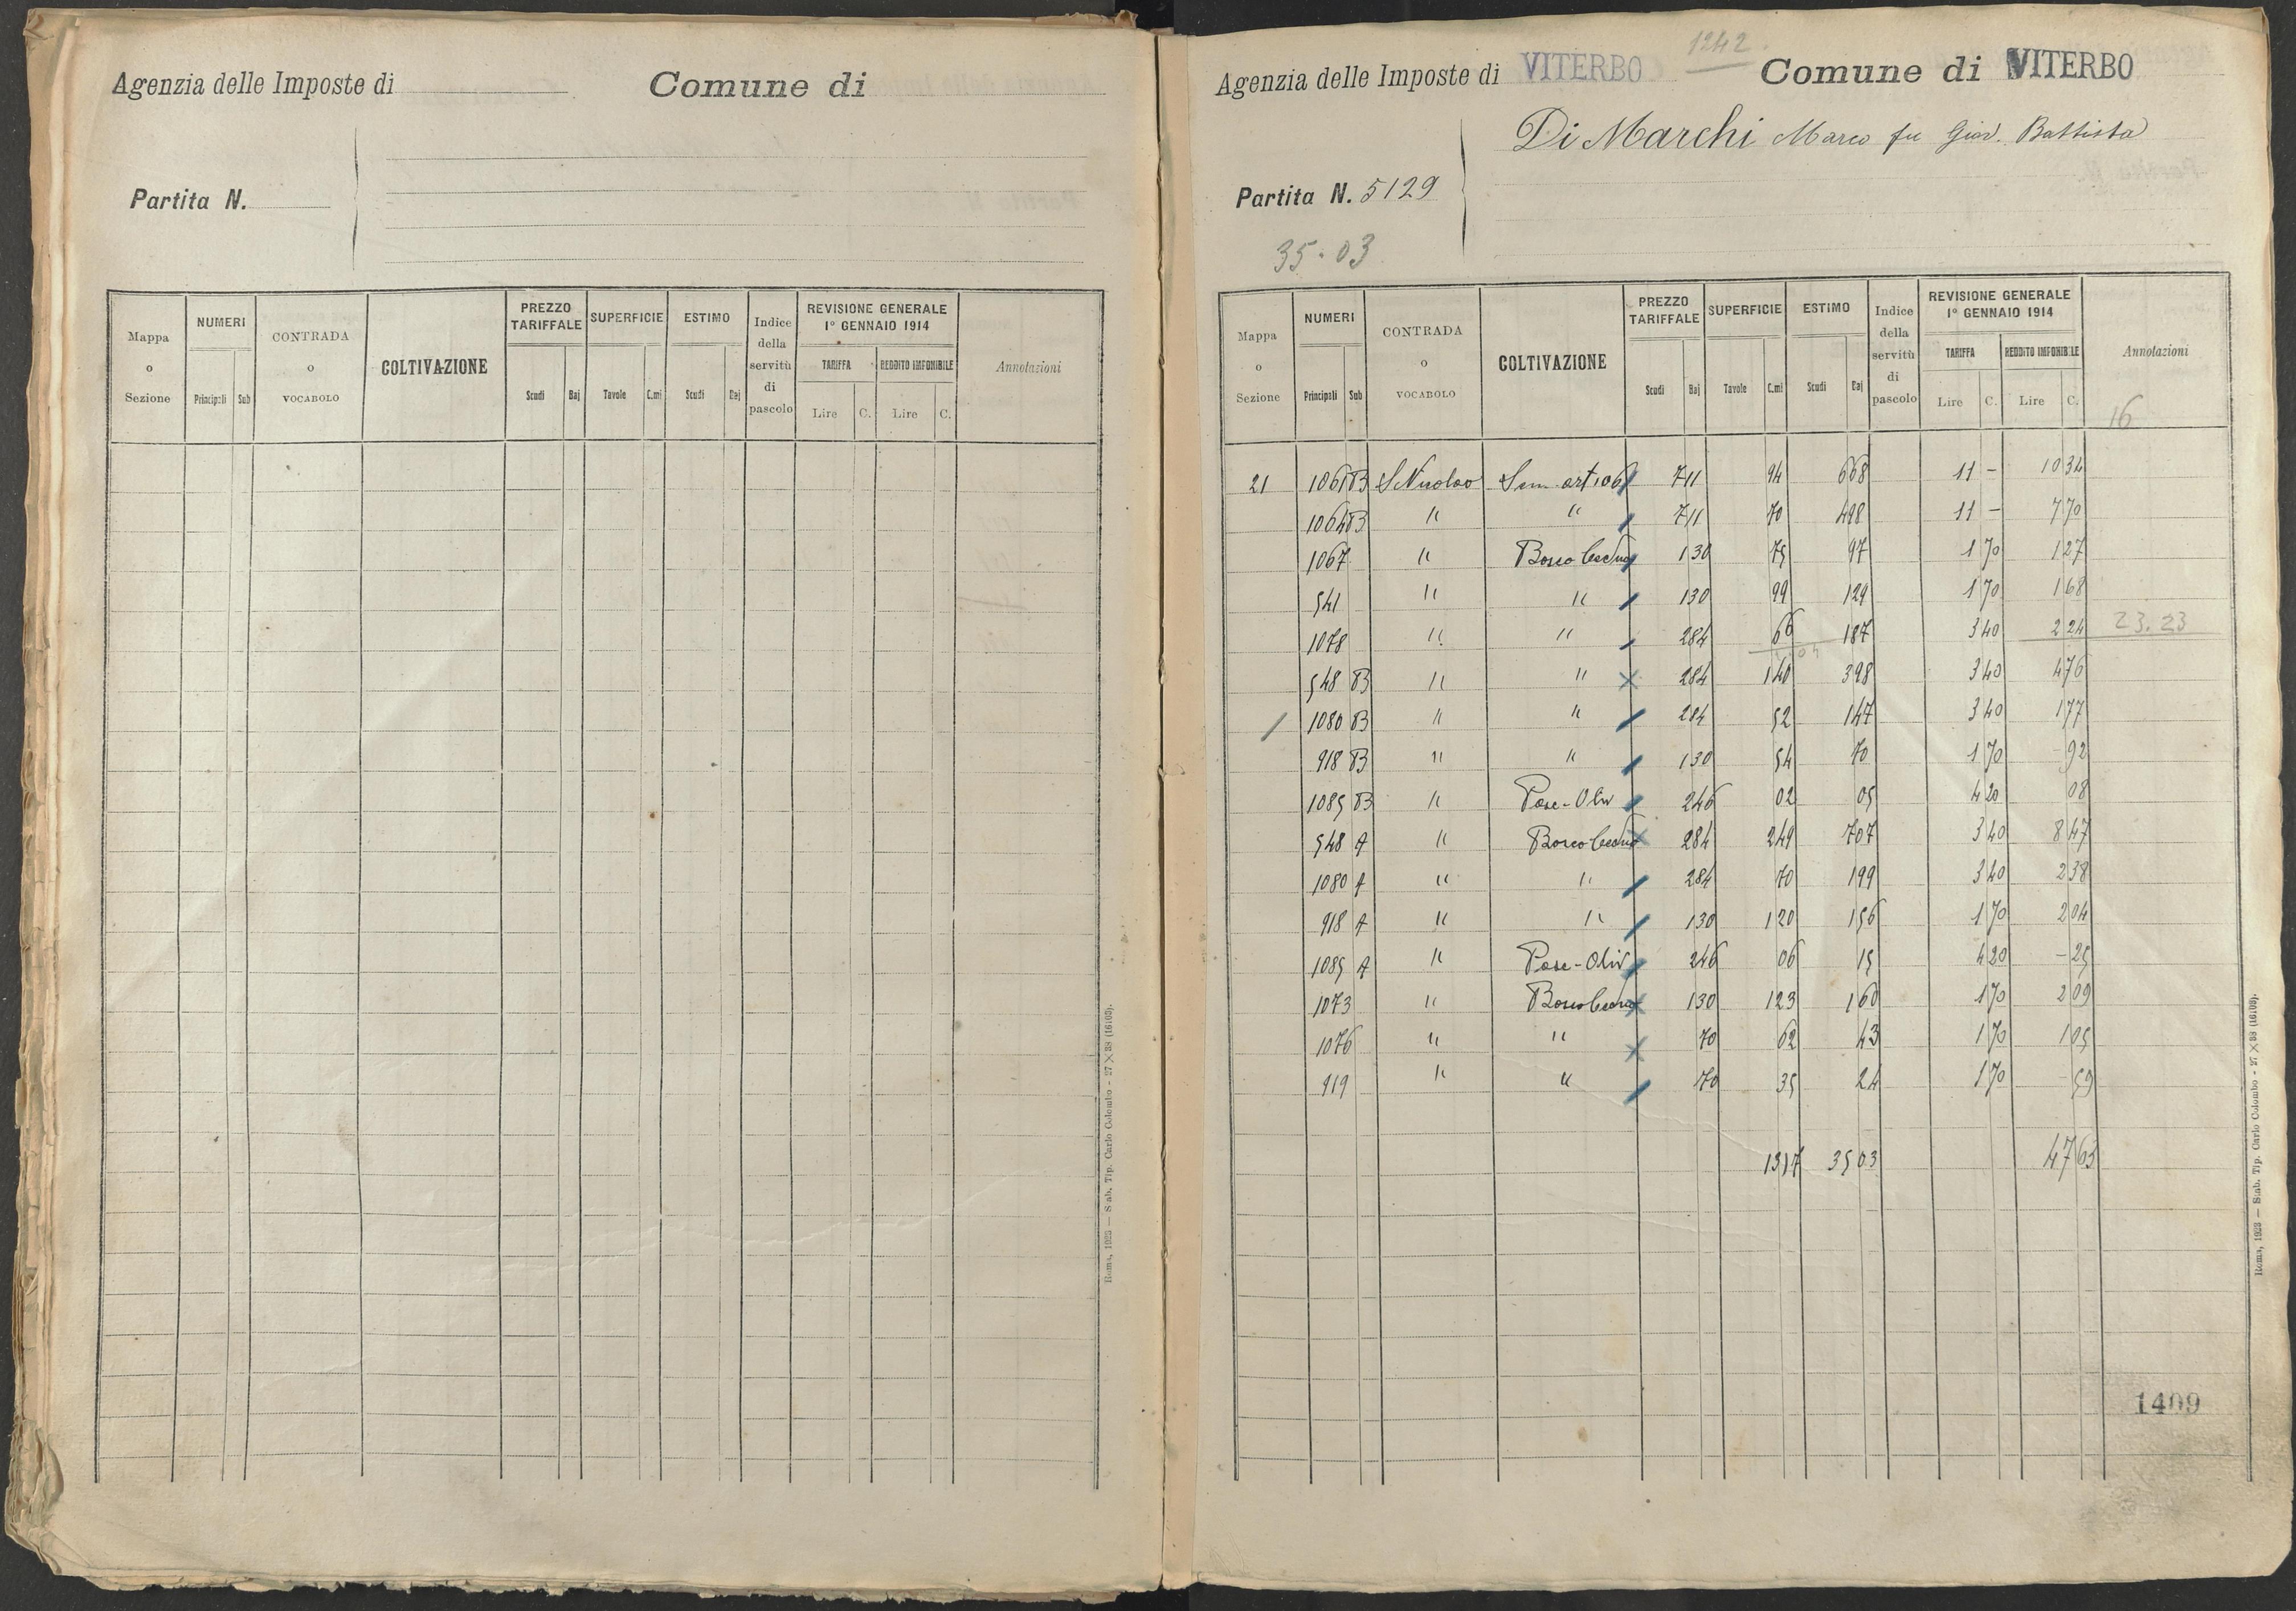 Agenzia delle Imposte di
Comune di
Partita N.
Mappa o Sezione
NUMERI
Principali Sub
CONTRADA o VOCABOLO
COLTIVAZIONE
PREZZO TARIFFALE
Scudi Baj
SUPERFICIE
Tavole C.mi
ESTIMO
Scudi Baj
Indice della servitù di pascolo
REVISIONE GENERALE
1° GENNAIO 1914
TARIFFA REDDITO IMPONIBILE
Lire C. Lire C.
Annotazioni
Roma, 1923 — Stab. Tip. Carlo Colombo - 27 X 38 (16103).
1242
Agenzia delle Imposte di VITERBO Comune di VITERBO
Di Marchi Marco fu Giov. Battista
Partita N. 5129
35.03
Mappa o Sezione
NUMERI
Principali Sub
CONTRADA o VOCABOLO
COLTIVAZIONE
PREZZO TARIFFALE
Scudi Baj
SUPERFICIE
Tavole C.mi
ESTIMO
Scudi Baj
Indice della servitù di pascolo
REVISIONE GENERALE
1° GENNAIO 1914
TARIFFA REDDITO IMPONIBILE
Lire C. Lire C.
Annotazioni
16
21 1061 B S Nicolao Sem. art 106 7 11 94 6 68 11 - 10 34
1064 B " " 7 11 70 4 98 11 - 7 70
1067 " Bosco Ceduo 1 30 75 97 1 70 1 27
541 " " 1 30 99 1 29 1 70 1 68
1078 " " 2 84 66 1 87 3 40 2 24 23.23
548 B " " X 2 84 1 40 3 98 3 40 4 76
/ 1080 B " " 2 84 52 1 47 3 40 1 77
918 B " " 1 30 54 70 1 70 - 92
1085 B " Pasc-Oliv 2 46 02 05 4 20 08
548 A " Bosco Ceduo X 2 84 2 49 7 07 3 40 8 47
1080 A " " 2 84 70 1 99 3 40 2 38
918 A " " 1 30 1 20 1 56 1 70 2 04
1085 A " Pasc-Oliv 2 46 06 15 4 20 - 25
1073 " Bosco Ceduo X 1 30 1 23 1 60 1 70 2 09
1076 " " X 70 62 43 1 70 1 05
919 " " 70 35 24 1 70 - 59
13 17 35 03 47 63
1409
Roma, 1923 — Stab. Tip. Carlo Colombo - 27 X 38 (16103).